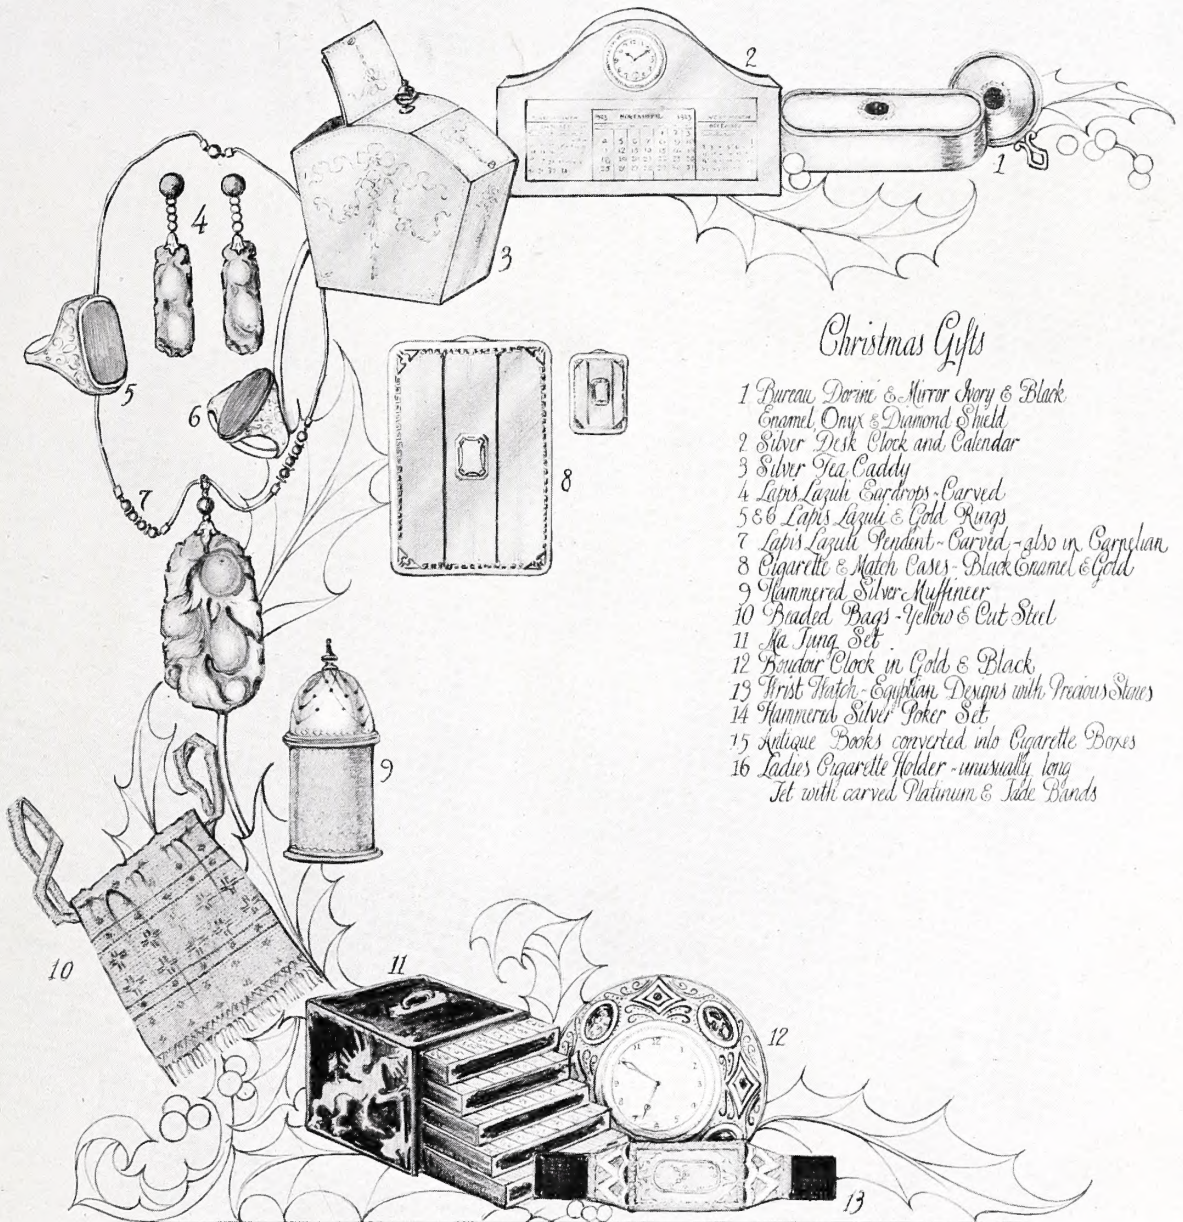 2
1
3
4
5
6
7
8
9
10
11
12
13
1923 NOVEMBER 1923
Christmas Gifts
1 Bureau Dorine & Mirror Ivory & Black
Enamel, Onyx & Diamond Shield
2 Silver Desk Clock and Calendar
3 Silver Tea Caddy
4 Lapis Lazuli Eardrops - Carved
5 & 6 Lapis Lazuli & Gold Rings
7 Lapis Lazuli Pendent - Carved - also in Carnelian
8 Cigarette & Match Cases - Black Enamel & Gold
9 Hammered Silver Muffineer
10 Beaded Bags - Yellow & Cut Steel
11 Ma Jung Set
12 Boudoir Clock in Gold & Black
13 Wrist Watch - Egyptian Designs with Precious Stones
14 Hammered Silver Poker Set
15 Antique Books converted into Cigarette Boxes
16 Ladies Cigarette Holder - unusually long
Jet with carved Platinum & Jade Bands